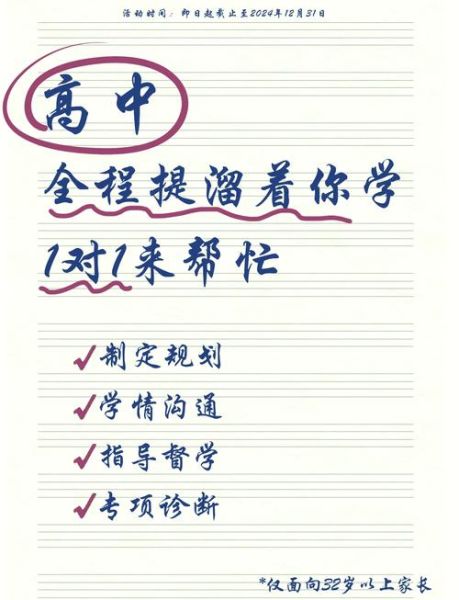 活动时间：即日起截止至2024年12月31日
高中
全程提溜着你学
1对1来帮忙
✓制定规划
✓学情沟通
✓指导督学
✓专项诊断
*仅面向32岁以上家长